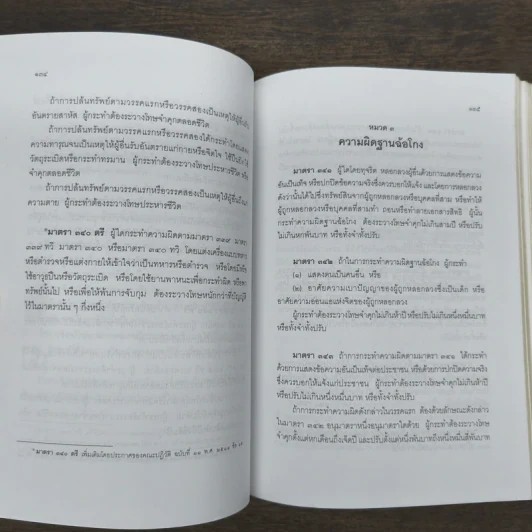 ๑๓๔
ถ้าการปล้นทรัพย์ตามวรรคแรกหรือวรรคสองเป็นเหตุให้ผู้อื่นรับ
อันตรายสาหัส ผู้กระทำต้องระวางโทษจำคุกตลอดชีวิต
ถ้าการปล้นทรัพย์ตามวรรคแรกหรือวรรคสองได้กระทำโดยแสดง
ความทารุณจนเป็นเหตุให้ผู้อื่นรับอันตรายแก่กายหรือจิตใจ ใช้ปืนยิง
วัตถุระเบิดหรือกระทำทรมาน ผู้กระทำต้องระวางโทษประหารชีวิต หรือ
จำคุกตลอดชีวิต
ถ้าการปล้นทรัพย์ตามวรรคแรกหรือวรรคสองเป็นเหตุให้ผู้อื่นถึงแก่
ความตาย ผู้กระทำต้องระวางโทษประหารชีวิต
*มาตรา ๓๔๐ ตรี ผู้ใดกระทำความผิดตามมาตรา ๓๓๙ มาตรา
๓๓๙ ทวิ มาตรา ๓๔๐ หรือมาตรา ๓๔๐ ทวิ โดยแต่งเครื่องแบบทหาร
หรือตำรวจหรือแต่งกายให้เข้าใจว่าเป็นทหารหรือตำรวจ หรือโดยมีหรือ
ใช้อาวุธปืนหรือวัตถุระเบิด หรือโดยใช้ยานพาหนะเพื่อกระทำผิด หรือพา
ทรัพย์นั้นไป หรือเพื่อให้พ้นการจับกุม ต้องระวางโทษหนักกว่าที่บัญญัติ
ไว้ในมาตรานั้น ๆ กึ่งหนึ่ง
*มาตรา ๓๔๐ ตรี เพิ่มเติมโดยประกาศของคณะปฏิวัติ ฉบับที่ ๑๑ พ.ศ. ๒๕๑๔ ข้อ
๑๓๕
หมวด ๓
ความผิดฐานฉ้อโกง
มาตรา ๓๔๑ ผู้ใดโดยทุจริต หลอกลวงผู้อื่นด้วยการแสดงข้อความ
อันเป็นเท็จ หรือปกปิดข้อความจริงซึ่งควรบอกให้แจ้ง และโดยการหลอกลวง
ดังว่านั้นได้ไปซึ่งทรัพย์สินจากผู้ถูกหลอกลวงหรือบุคคลที่สาม หรือทำให้
ผู้ถูกหลอกลวงหรือบุคคลที่สามทำ ถอนหรือทำลายเอกสารสิทธิ ผู้นั้น
กระทำความผิดฐานฉ้อโกง ต้องระวางโทษจำคุกไม่เกินสามปี หรือปรับ
ไม่เกินหกพันบาท หรือทั้งจำทั้งปรับ
มาตรา ๓๔๒ ถ้าในการกระทำความผิดฐานฉ้อโกง ผู้กระทำ
(๑) แสดงตนเป็นคนอื่น หรือ
(๒) อาศัยความเบาปัญญาของผู้ถูกหลอกลวงซึ่งเป็นเด็ก หรือ
อาศัยความอ่อนแอแห่งจิตของผู้ถูกหลอกลวง
ผู้กระทำต้องระวางโทษจำคุกไม่เกินห้าปี หรือปรับไม่เกินหนึ่งหมื่นบาท
หรือทั้งจำทั้งปรับ
มาตรา ๓๔๓ ถ้าการกระทำความผิดตามมาตรา ๓๔๑ ได้กระทำ
ด้วยการแสดงข้อความอันเป็นเท็จต่อประชาชน หรือด้วยการปกปิดความจริง
ซึ่งควรบอกให้แจ้งแก่ประชาชน ผู้กระทำต้องระวางโทษจำคุกไม่เกินห้าปี
หรือปรับไม่เกินหนึ่งหมื่นบาท หรือทั้งจำทั้งปรับ
ถ้าการกระทำความผิดดังกล่าวในวรรคแรก ต้องด้วยลักษณะดังกล่าว
ในมาตรา ๓๔๒ อนุมาตราหนึ่งอนุมาตราใดด้วย ผู้กระทำต้องระวางโทษ
จำคุกตั้งแต่หกเดือนถึงเจ็ดปี และปรับตั้งแต่หนึ่งพันบาทถึงหนึ่งหมื่นสี่พันบาท